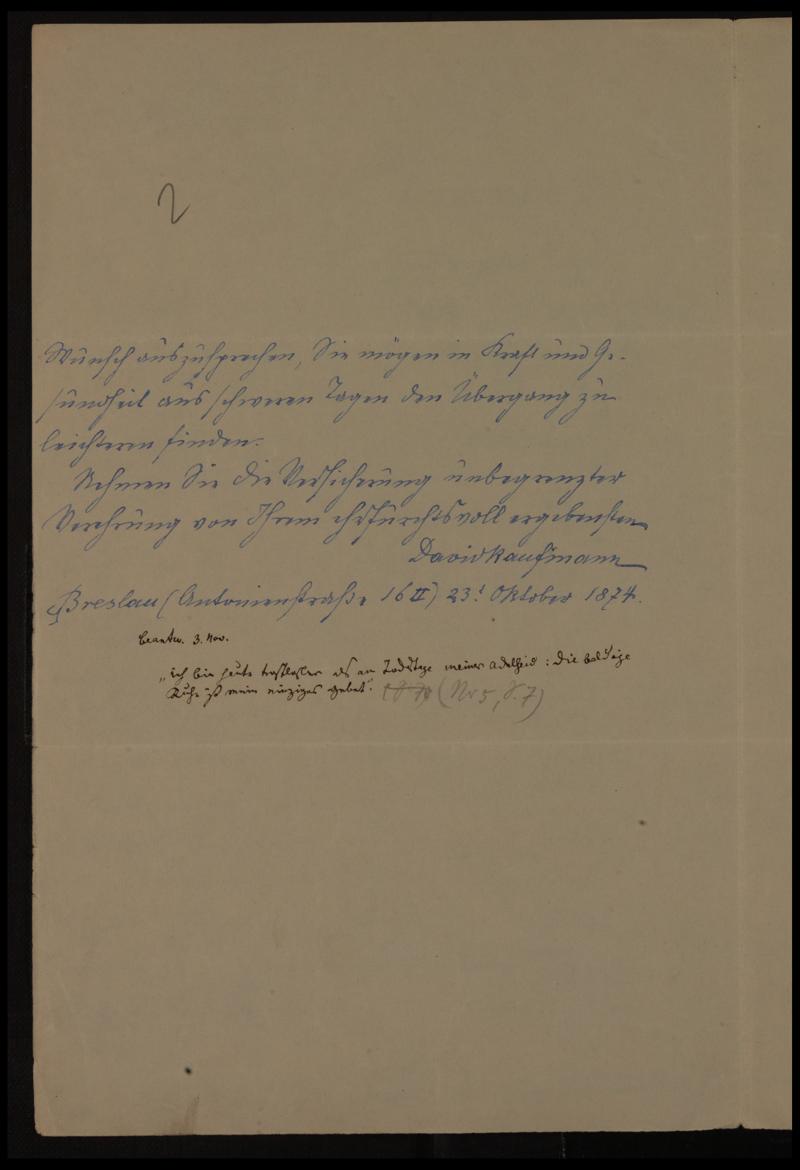 2
Wunsch auszusprechen, Sie mögen in Kraft und Ge-
sundheit aus schweren Tagen den Übergang zu
leichteren finden.
Nehmen Sie die Versicherung unbegrenzter
Verehrung von Ihrem ehrfurchtsvoll ergebensten
David Kaufmann
Breslau (Antonienstraße 16 II) 23t Oktober 1874.
beantw. 3. Nov.
„ich bin heute trostloser als am Todestage meiner Adelheid: Die baldige
Ruhe ist mein einziges Gebet“. (Nr 5, S. 7)